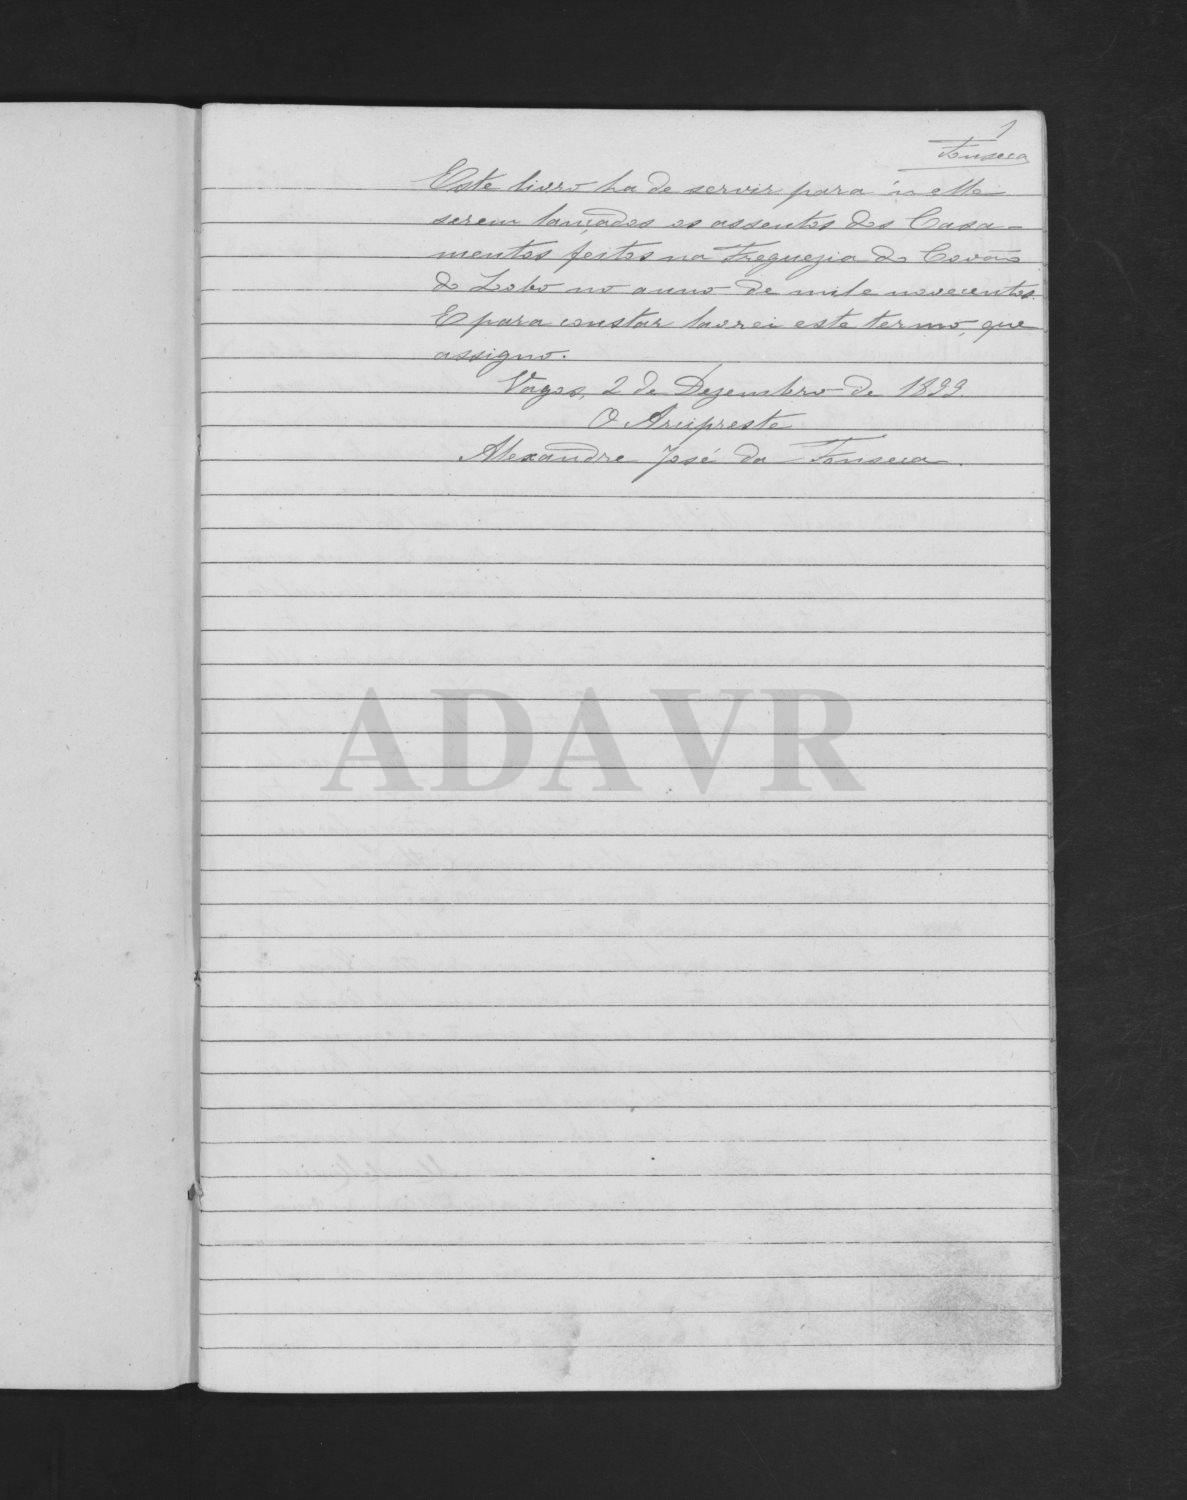 1
Fonseca
Este livro ha de servir para n'elle
serem lançados os assentos dos Casa-
mentos feitos na Freguezia do Covão
do Lobo no anno de mil e novecentos.
E para constar lavrei este termo, que
assigno.
Vagos, 2 de Dezembro de 1899.
O Arcipreste
Alexandre José da Fonseca.
ADAVR